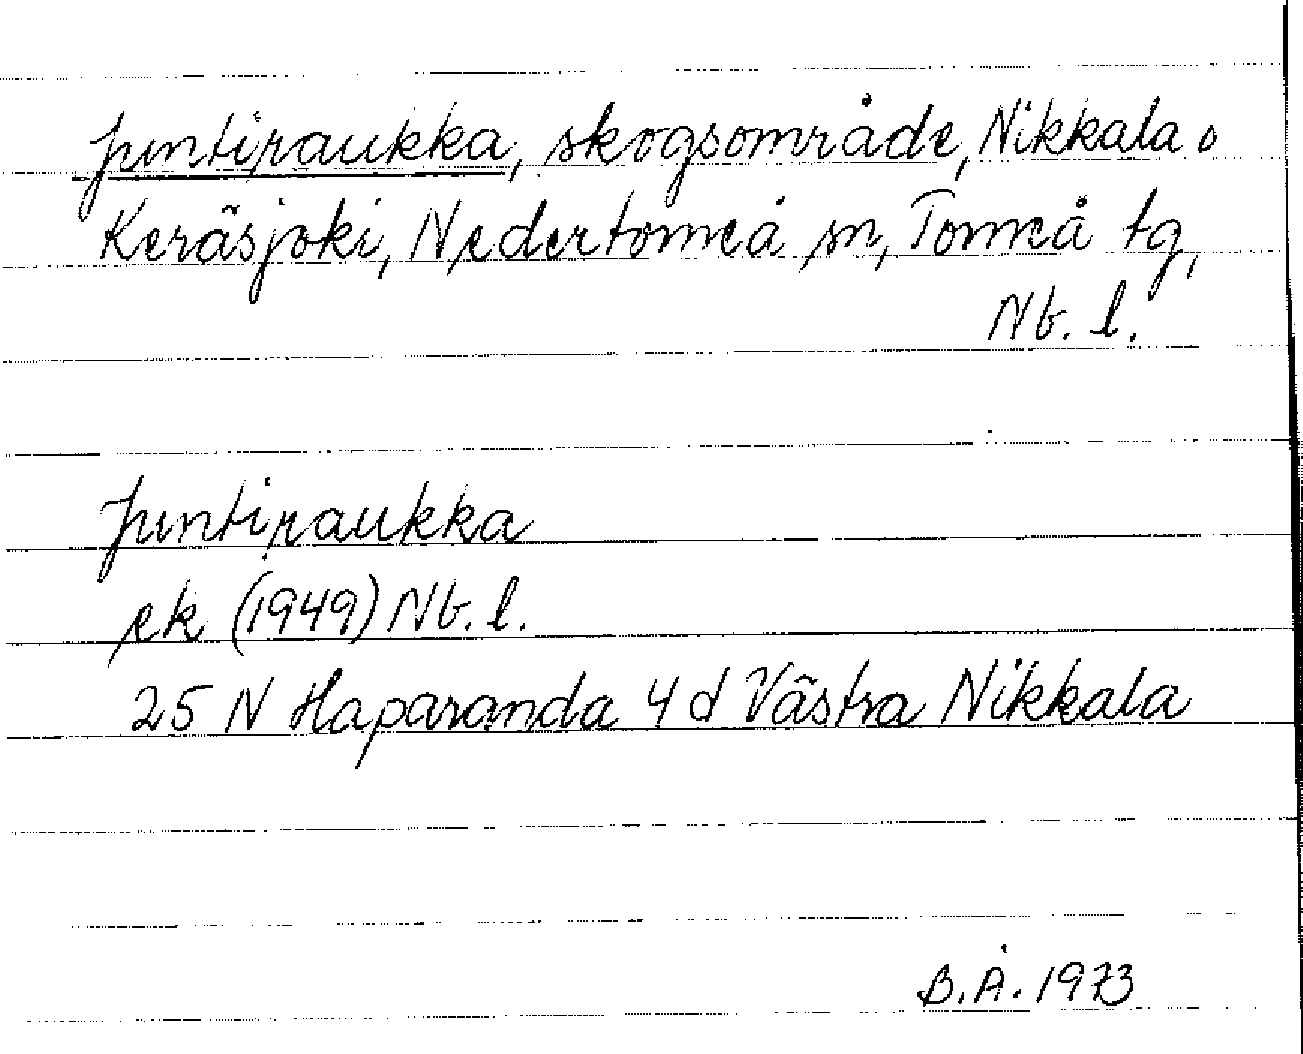 Juntiraukka, skogsområde, Nikkala o
Keräsjoki, Nedertorneå sn, Torneå tg,
Nb. l.
Juntiraukka
ek (1949) Nb. l.
25 N Haparanda 4 d Västra Nikkala
B.Å. 1973